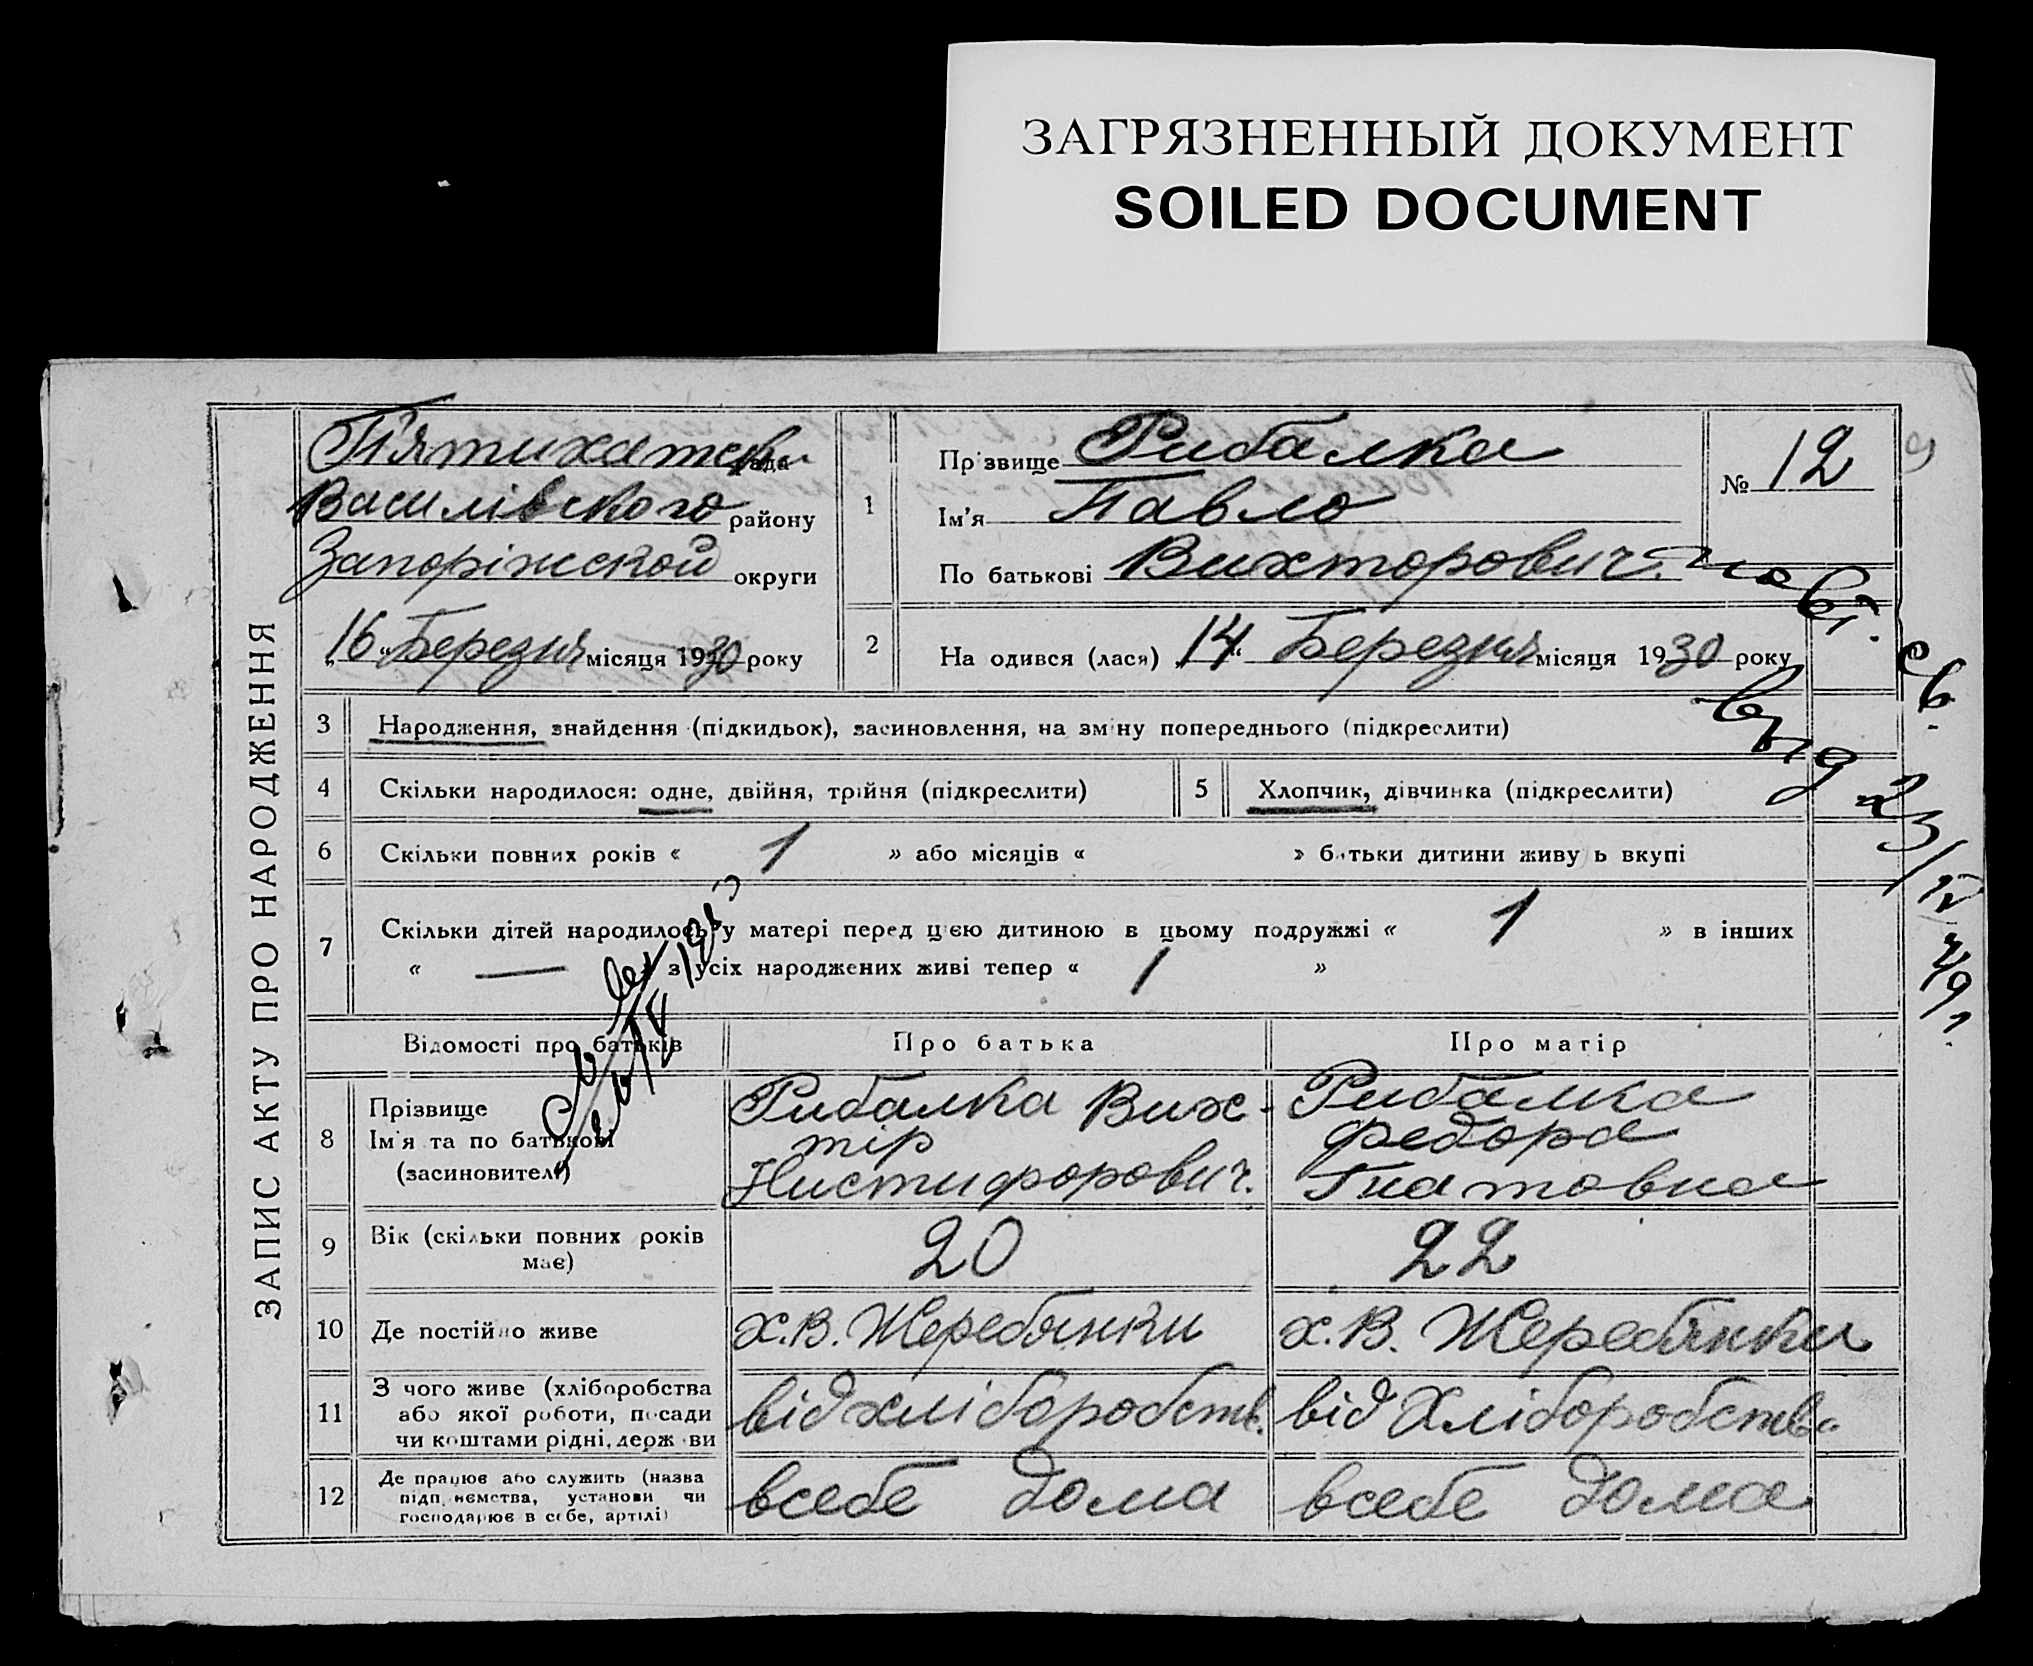 ЗАГРЯЗНЕННЫЙ ДОКУМЕНТ
SOILED DOCUMENT
ЗАПИС АКТУ ПРО НАРОДЖЕННЯ
П'ятихатськ рада
Василівського району
Запоріжской округи
„16“ Березня місяця 1930 року
1
Прізвище Рибалка
Ім'я Павло
По батькові Вихторович.
№ 12
2 На одився (лася) „14“ Березня місяця 1930 року
повт. св.
выд 23/IV 49 г.
3 Народження, знайдення (підкидьок), засиновлення, на зміну попереднього (підкреслити)
4 Скільки народилося: одне, двійня, трійня (підкреслити)
5 Хлопчик, дівчинка (підкреслити)
6 Скільки повних років « 1 » або місяців « » батьки дитини живуть вкупі
7 Скільки дітей народилось у матері перед цією дитиною в цьому подружжі « 1 » в інших
« — з усіх народжених живі тепер « 1 »
Відомості про батьків
Про батька
Про матір
8 Прізвище
Ім'я та по батькові
(засиновителі)
Рибалка Вих-
тір
Нистифорович.
Рибалка
Федора
Гнатовна
9 Вік (скільки повних років
має)
20
22
10 Де постійно живе
х. В. Жеребянки
х. В. Жеребянки
11 З чого живе (хліборобства
або якої роботи, посади
чи коштами рідні, держави
від хліборобств.
від Хліборобства
12 Де працює або служить (назва
підприємства, установи чи
господарює в себе, артілі)
всебе дома
всебе дома